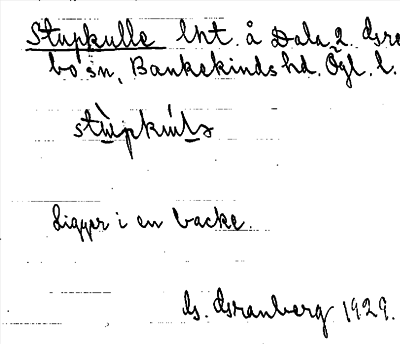 Stupkulle lht. å Dala 2. Gre
bo sn, Bankekinds hd. Ögl. l.
Ligger i en backe.
G. Granberg 1929.